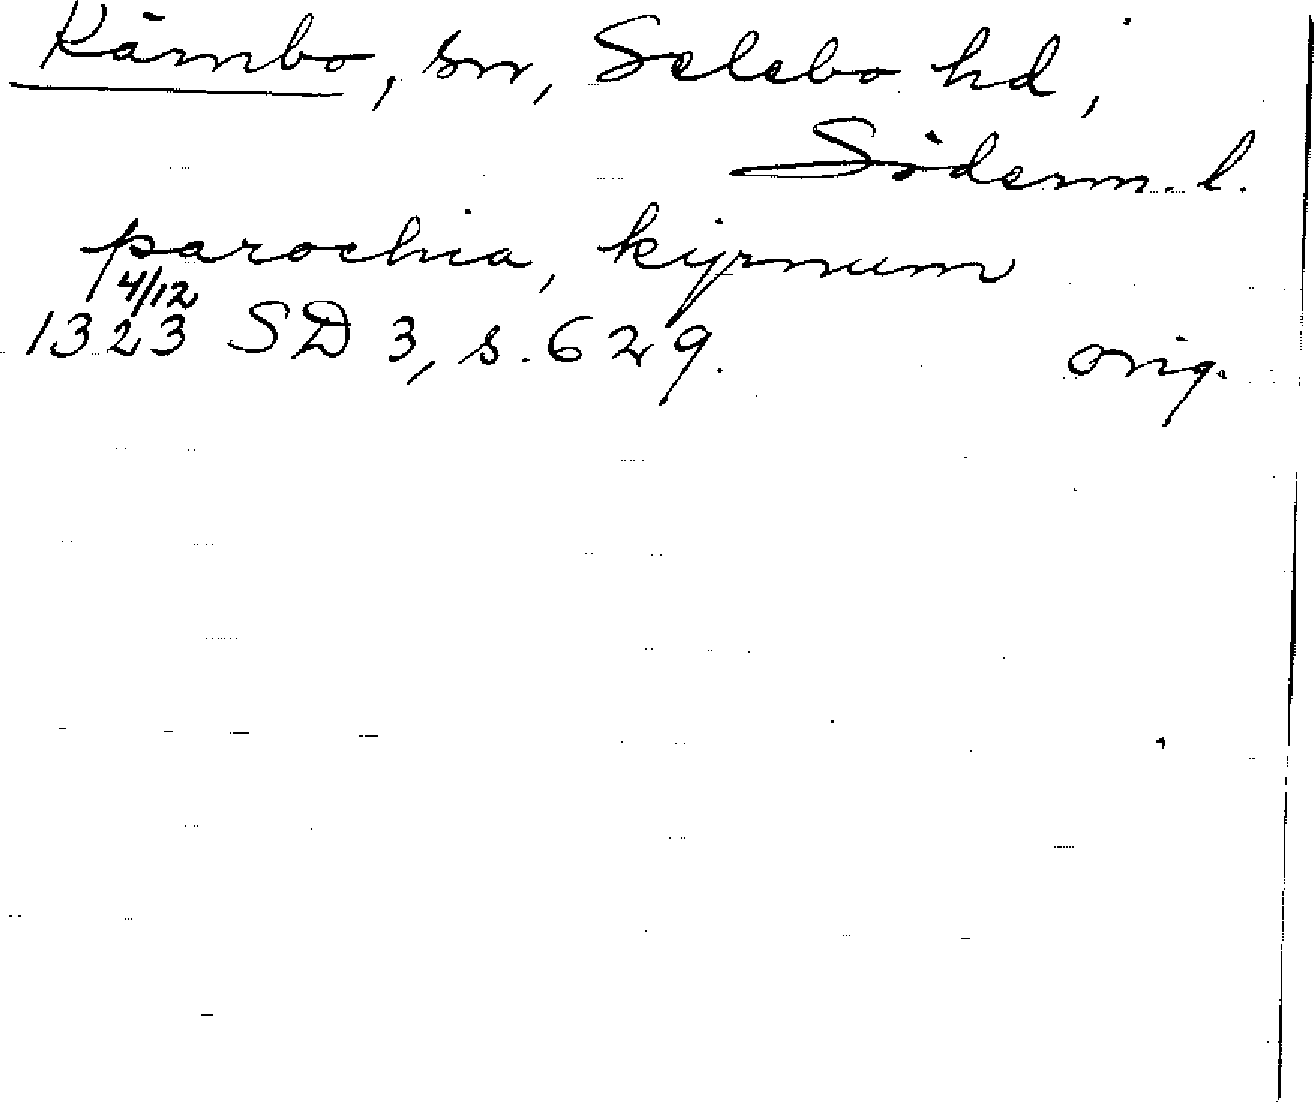 Kärnbo, sn, Selebo hd,
Söderm. l.
parochia, kyrnum
4/12
1323 SD 3, s. 629. orig.